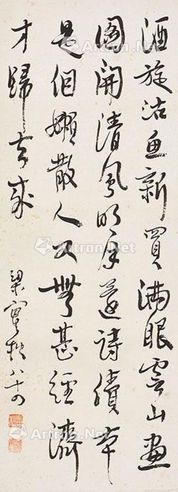 酒旋沽魚新買滿眼雲山畫
圖開清風明月還詩債本
是個嬾散人又無甚經濟
才歸去來
梁寒操